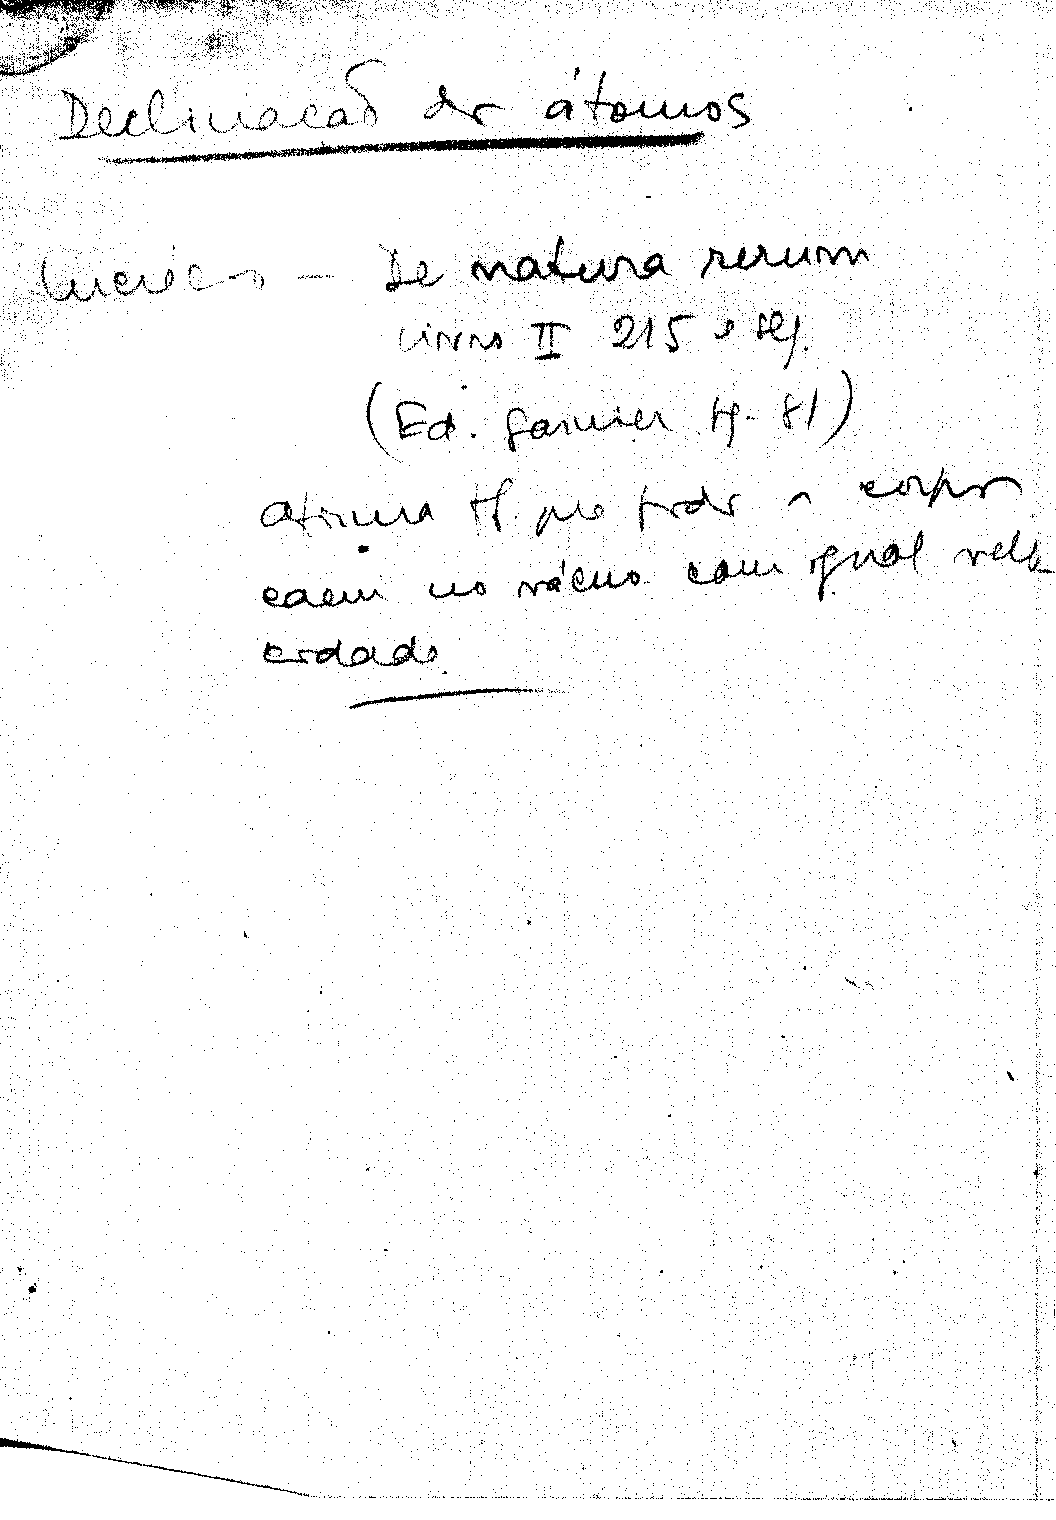 Declinação dos átomos
Lucrécio — De natura rerum
Livro II 215 e seg.
(Ed. Garnier pg. 81)
Afirma tb. que todos os corpos
caem no vácuo com igual velo
cidade